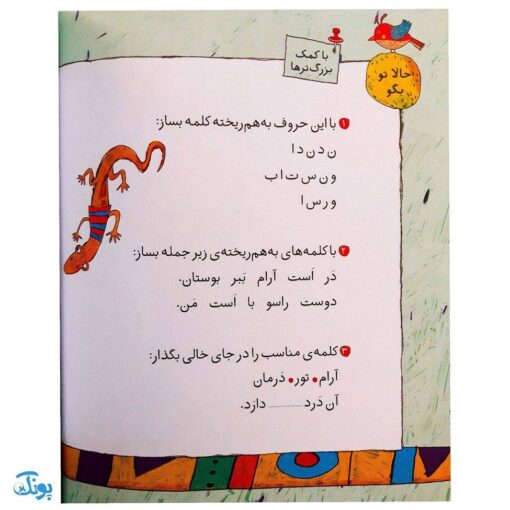 با کمک
بزرگ‌ترها
حالا تو
بگو
۱ با این حروف به‌هم‌ریخته کلمه بساز:
ن د ن د ا
و ن س ت ا ب
و ر س ا
۲ با کلمه‌های به‌هم‌ریخته‌ی زیر جمله بساز:
دَر اَست آرام بَبر بوستان.
دوست راسو با اَست مَن.
۳ کلمه‌ی مناسب را در جای خالی بگذار:
آرام • تور • دَرمان
آن دَرد .............. دارَد.
پونک